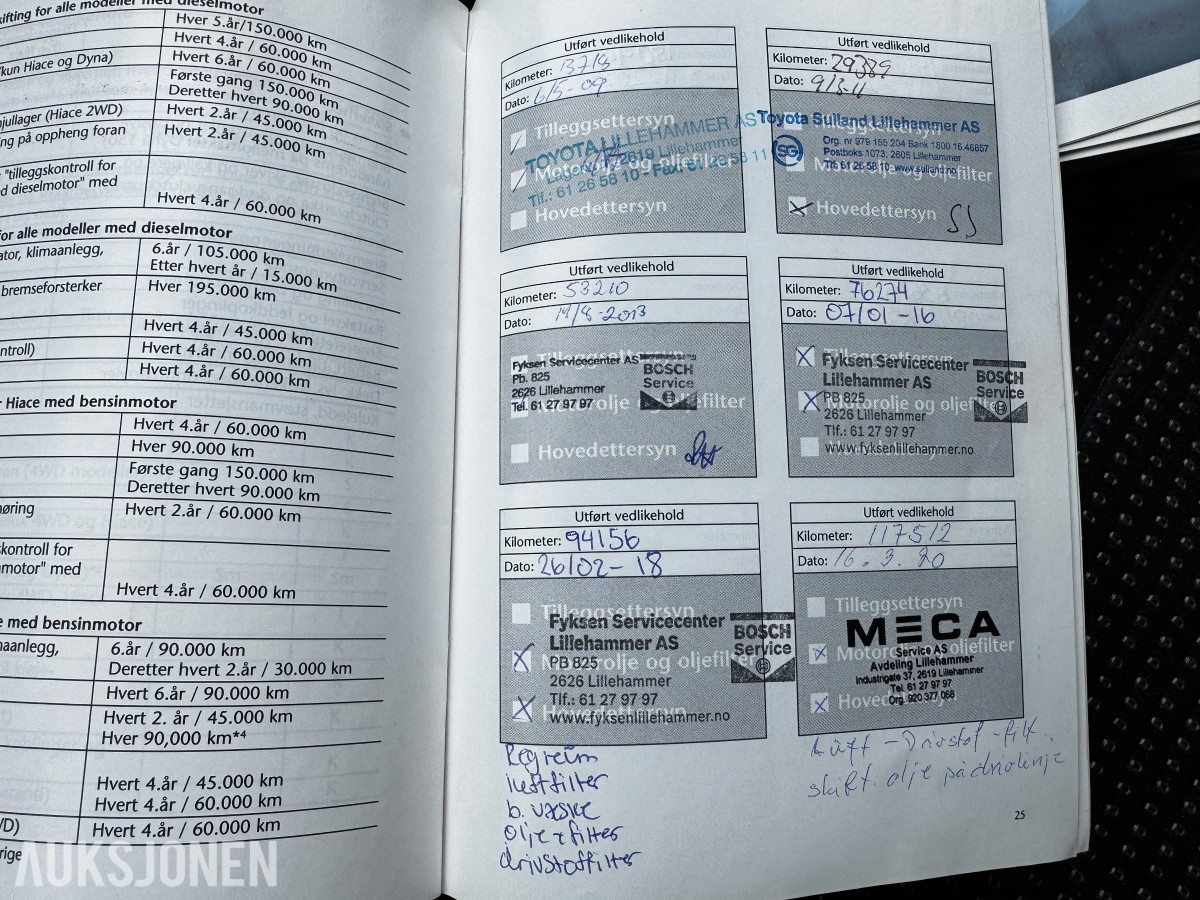 kifting for alle modeller med dieselmotor
Hver 5.år/150.000 km
Hvert 4.år / 60.000 km
(kun Hiace og Dyna)
Hvert 6.år / 60.000 km
Første gang 150.000 km
Deretter hvert 90.000 km
hjullager (Hiace 2WD)
Hvert 2.år / 45.000 km
ing på oppheng foran
Hvert 2.år / 45.000 km
"tilleggskontroll for
d dieselmotor" med
Hvert 4.år / 60.000 km
for alle modeller med dieselmotor
ator, klimaanlegg,
6.år / 105.000 km
Etter hvert år / 15.000 km
bremseforsterker
Hver 195.000 km
Hvert 4.år / 45.000 km
ntroll)
Hvert 4.år / 60.000 km
Hvert 4.år / 60.000 km
Hiace med bensinmotor
Hvert 4.år / 60.000 km
Hver 90.000 km
Første gang 150.000 km
Deretter hvert 90.000 km
øring
Hvert 2.år / 60.000 km
kontroll for
motor" med
Hvert 4.år / 60.000 km
e med bensinmotor
naanlegg,
6.år / 90.000 km
Deretter hvert 2.år / 30.000 km
Hvert 6.år / 90.000 km
Hvert 2. år / 45.000 km
Hver 90,000 km*4
Hvert 4.år / 45.000 km
Hvert 4.år / 60.000 km
WD)
Hvert 4.år / 60.000 km
rige
AUKSJONEN
Utført vedlikehold
Kilometer: 13718
Dato: 6/5-09
Tilleggsettersyn
Motorolje og oljefilter
Hovedettersyn
TOYOTA LILLEHAMMER AS
2619 Lillehammer
Tlf.: 61 26 58 10 - Fax: 61 26 58 11
Utført vedlikehold
Kilometer: 29389
Dato: 9/3-11
Tilleggsettersyn
Motorolje og oljefilter
Hovedettersyn
Toyota Sulland Lillehammer AS
SG
Org. nr 979 155 204 Bank 1800 16 46857
Postboks 1073, 2605 Lillehammer
Tlf. 61 26 58 10 - www.sulland.no
SS
Utført vedlikehold
Kilometer: 53210
Dato: 19/8-2013
Tilleggsettersyn
Motorolje og oljefilter
Hovedettersyn
Fyksen Servicecenter AS
Pb. 825
2626 Lillehammer
Tel. 61 27 97 97
BOSCH
Service
Utført vedlikehold
Kilometer: 76274
Dato: 07/01-16
Tilleggsettersyn
Motorolje og oljefilter
Fyksen Servicecenter
Lillehammer AS
PB 825
2626 Lillehammer
Tlf.: 61 27 97 97
www.fyksenlillehammer.no
BOSCH
Service
Utført vedlikehold
Kilometer: 94156
Dato: 26/02-18
Tilleggsettersyn
Motorolje og oljefilter
Hovedettersyn
Fyksen Servicecenter
Lillehammer AS
PB 825
2626 Lillehammer
Tlf.: 61 27 97 97
www.fyksenlillehammer.no
BOSCH
Service
Regreim
luftfilter
b. væske
olje + filter
drivstoffilter
Utført vedlikehold
Kilometer: 117512
Dato: 16.3.20
Tilleggsettersyn
Motorolje og oljefilter
Hovedettersyn
MECA
Service AS
Avdeling Lillehammer
Industrigata 37, 2619 Lillehammer
Tel. 61 27 97 97
Org. 920 377 068
Luft - Drivstof - filt.
skift. olje på drivlinje
25